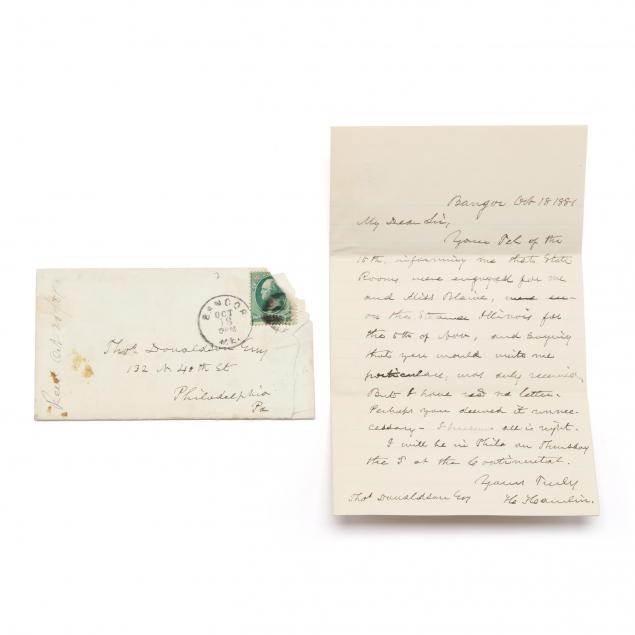 Rec'd Oct. 20/81
BANGOR
OCT
19
ME.
Thos Donaldson Esq
132 N 40th St
Philadelphia
Pa
Bangor Oct 18 1881
My Dear Sir,
Your Tel of the
15th. informing me that State
Rooms were engaged for me
and Miss Blaine,
on the Steamer Illinois for
the 5th of Nov, and saying
that you would write me
particulars, was duly received,
But I have red no letter.
Perhaps you deemed it unnec-
cessary - I presume all is right.
I will be in Phila on Thursday
the 3 at the Continental.
Yours Truly
Thos Donaldson Esq H. Hamlin.